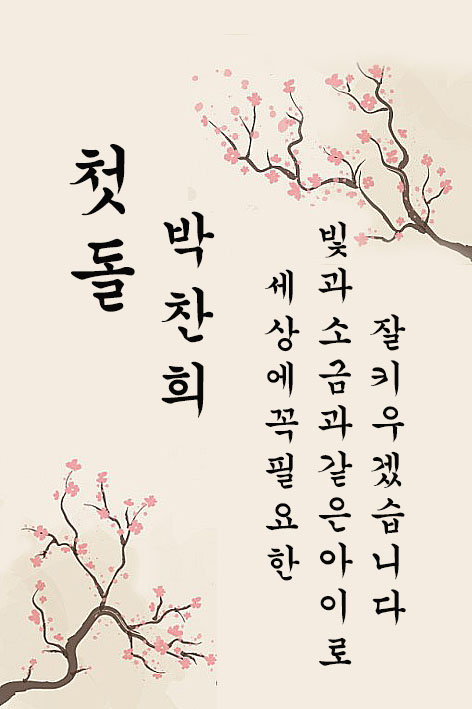 첫돌
박찬희
세상에꼭필요한
빛과소금과같은아이로
잘키우겠습니다